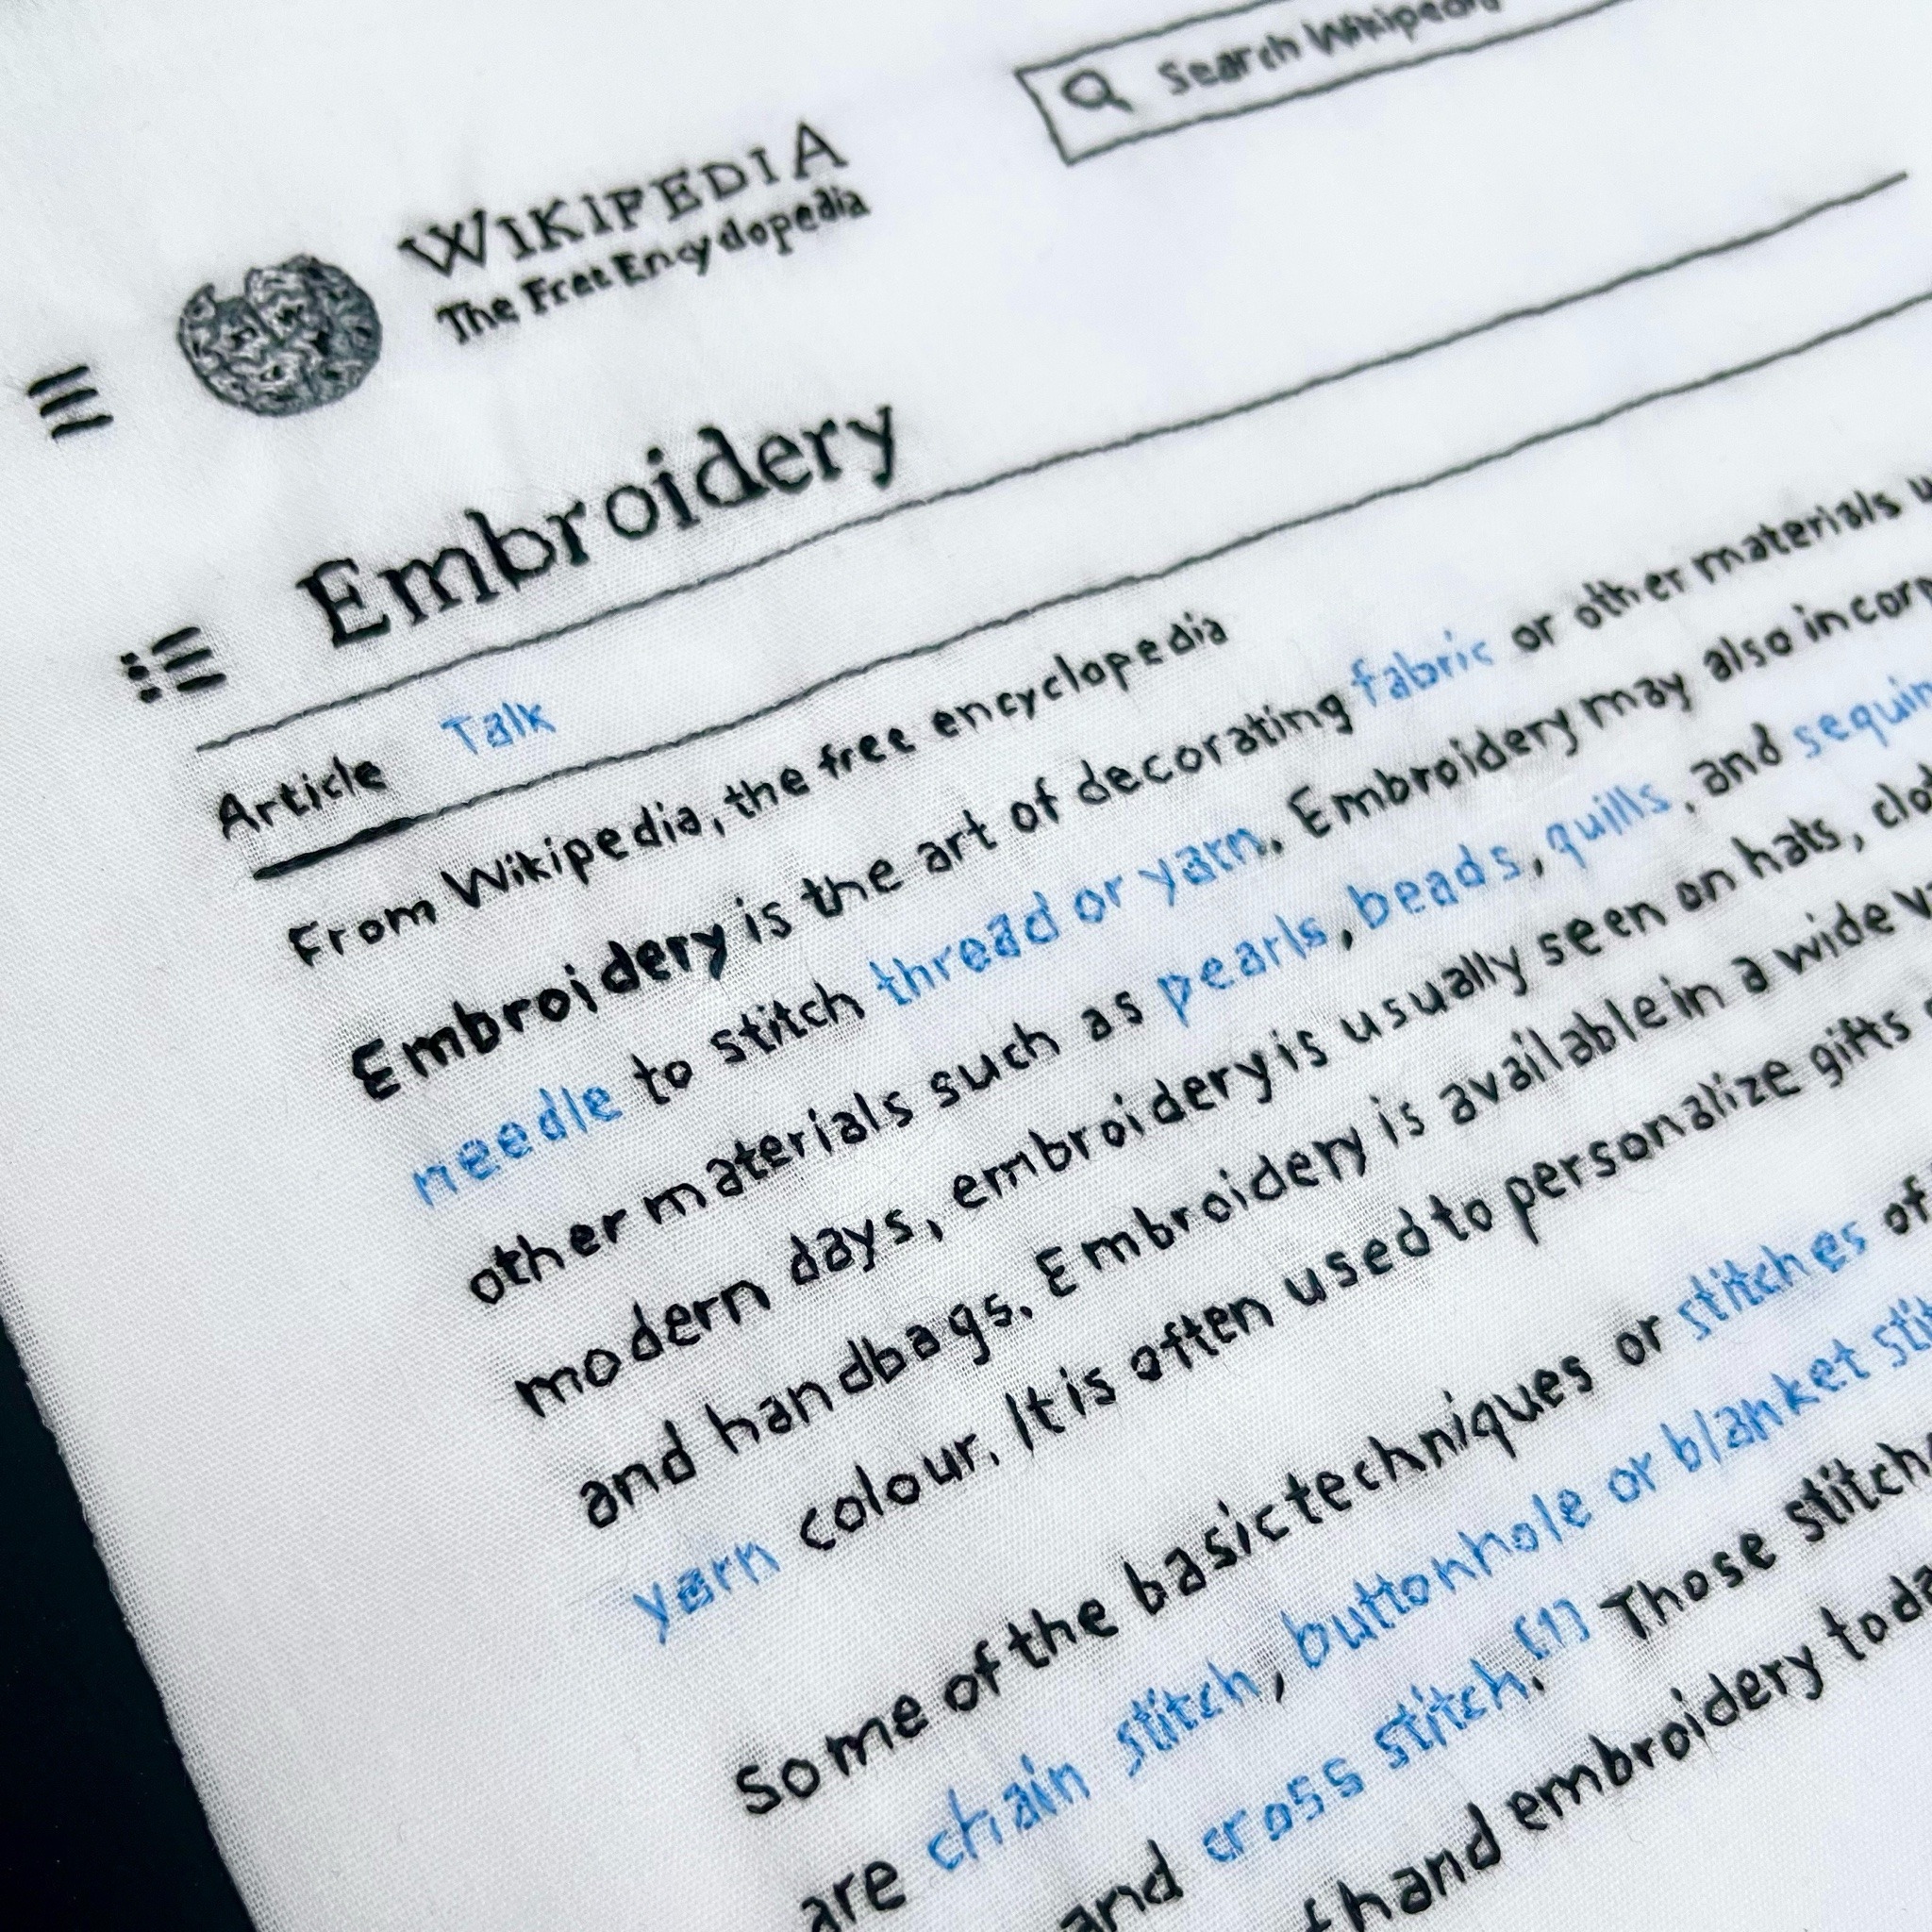 Search Wikipedia
WIKIPEDIA
The Free Encyclopedia
Embroidery
Article Talk
From Wikipedia, the free encyclopedia
Embroidery is the art of decorating fabric or other materials
needle to stitch thread or yarn. Embroidery may also
other materials such as pearls, beads, quills, and
modern days, embroidery is usually seen on hats,
and handbags. Embroidery is available in a wide
yarn colour. It is often used to personalize gifts
Some of the basic techniques or stitches of
are chain stitch, buttonhole or blanket
and cross stitch.[1] Those
hand embroidery